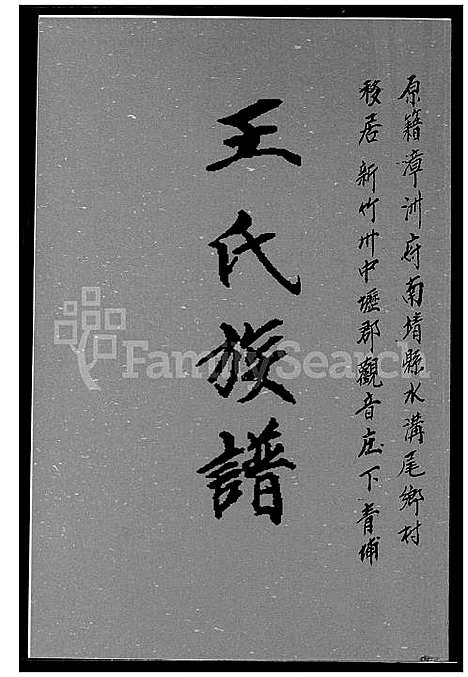 原籍漳洲府南靖縣水溝尾鄉村
移居新竹州中壢郡觀音庄下青埔
王氏族譜
FamilySearch